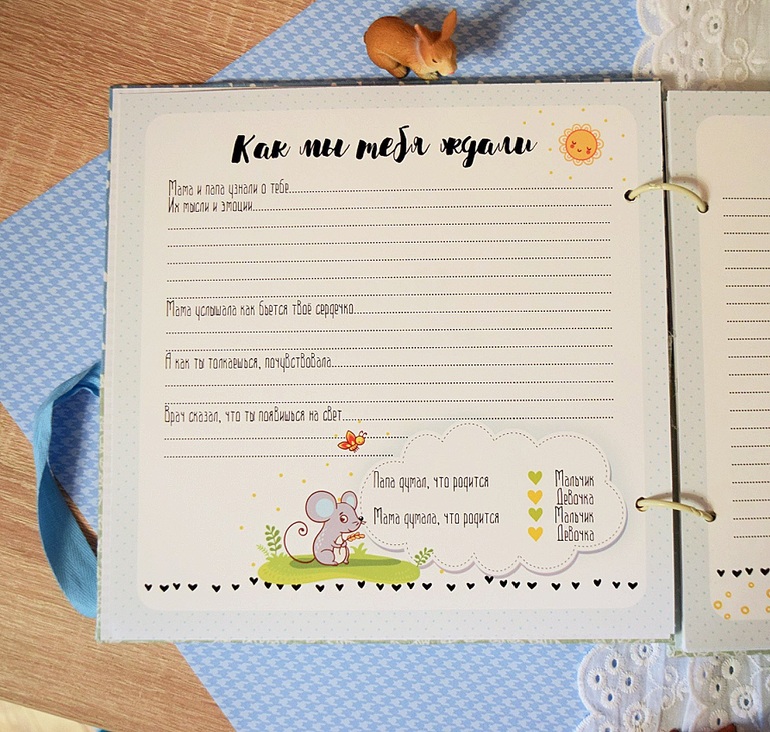 Как мы тебя ждали
Мама и папа узнали о тебе
Их мысли и эмоции
Мама услышала как бьется твоё сердечко
А как ты толкаешься, почувствовала
Врач сказал, что ты появишься на свет
Папа думал, что родится Мальчик
Девочка
Мама думала, что родится Мальчик
Девочка